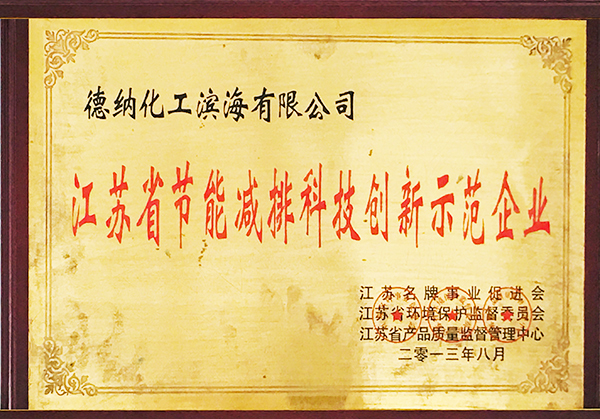 德纳化工滨海有限公司
江苏省节能减排科技创新示范企业
江苏名牌事业促进会
江苏省环境保护监督委员会
江苏省产品质量监督管理中心
二零一三年八月